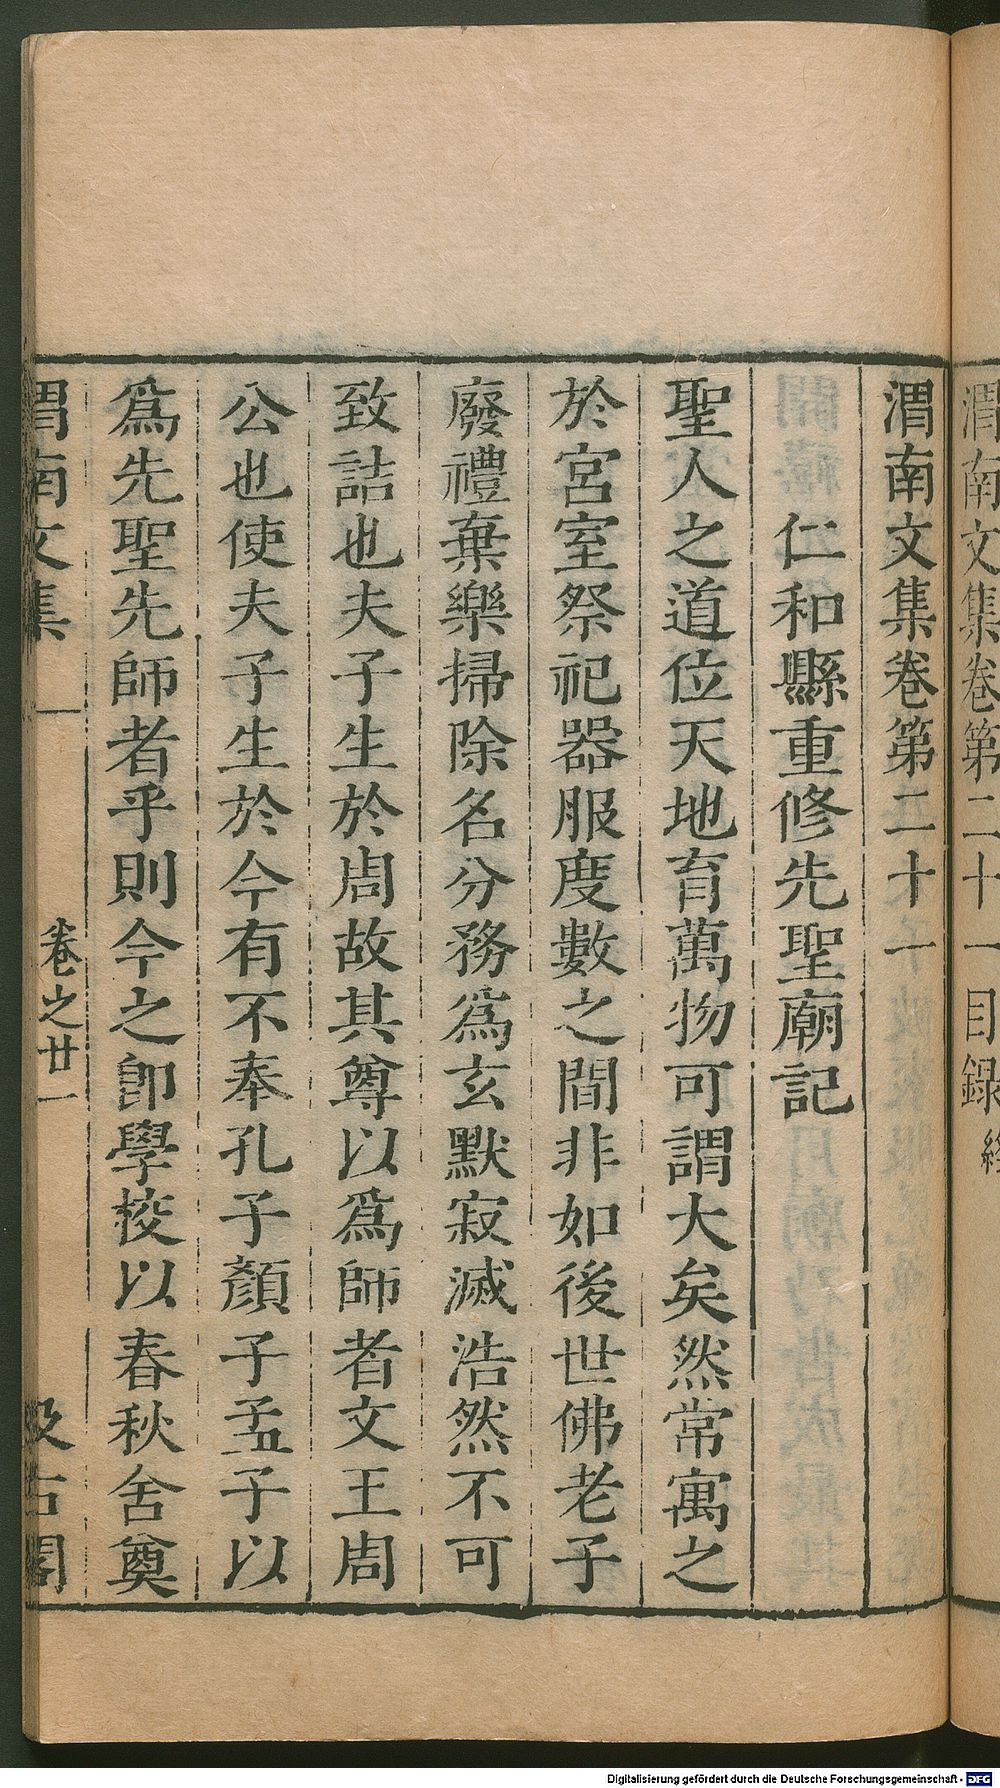 渭南文集卷第二十一目錄終
渭南文集卷第二十一
仁和縣重修先聖廟記
聖人之道位天地育萬物可謂大矣然常寓之
於宮室祭祀器服度數之間非如後世佛老子
廢禮棄樂掃除名分務爲玄默寂滅浩然不可
致詰也夫子生於周故其尊以爲師者文王周
公也使夫子生於今有不奉孔子顏子孟子以
爲先聖先師者乎則今之卽學校以春秋舍奠
渭南文集 卷之廿一 汲古閣
Digitalisierung gefördert durch die Deutsche Forschungsgemeinschaft - DFG